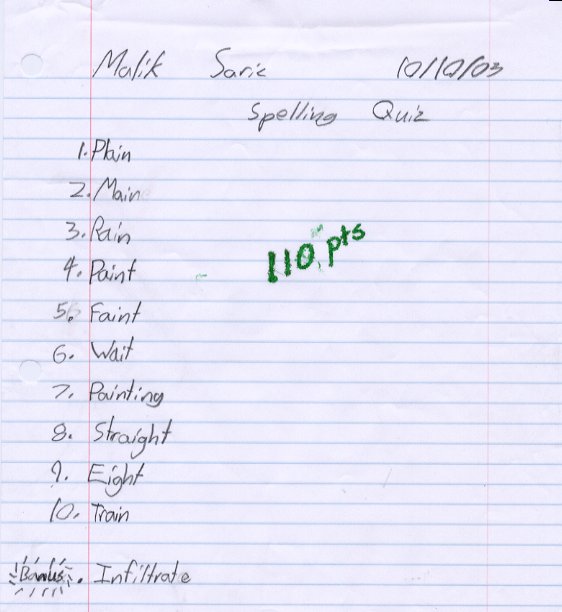 Malik Saric 10/10/03
Spelling Quiz
1. Plain
2. Main
3. Rain
4. Paint
110 pts
5. Faint
6. Wait
7. Painting
8. Straight
9. Eight
10. Train
Bonus. Infiltrate